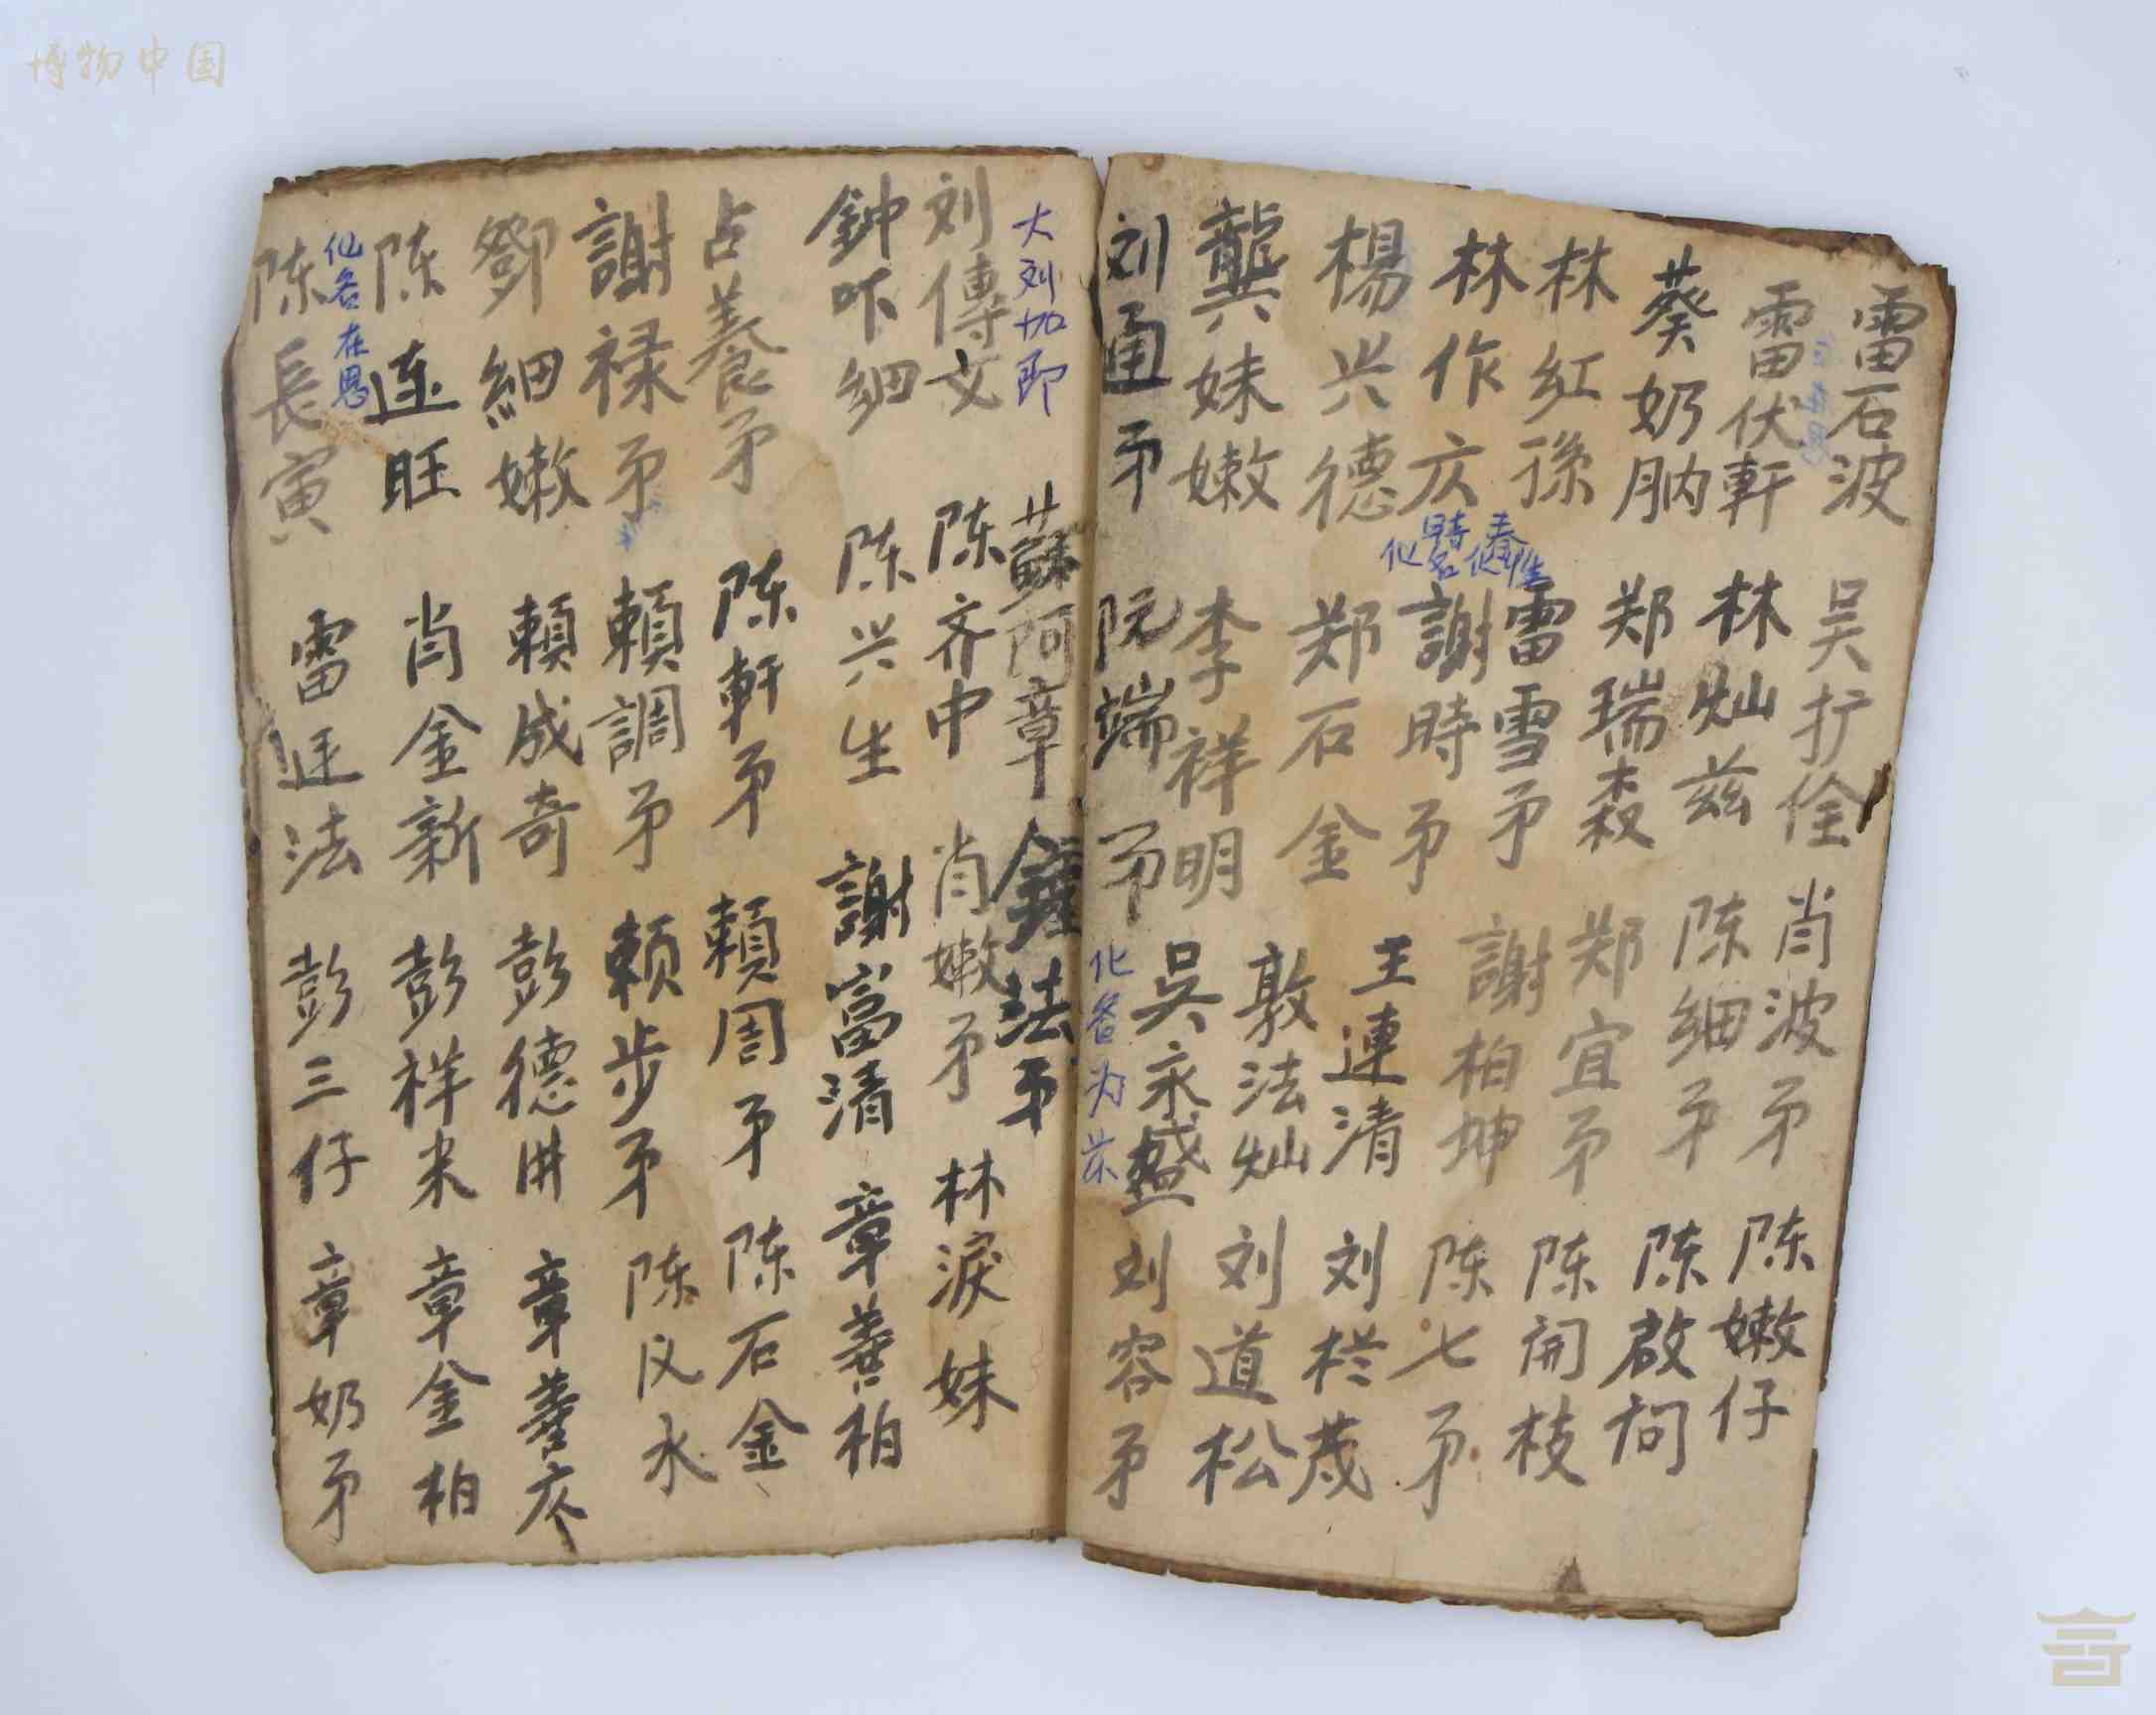 博物中国
雷石波 吴扩佺 肖波予 陈嫩仔
雷伏軒 林灿兹 陈细予 陈啟祠
葵奶肭 郑瑞森 郑宜予 陈開枝
林紅孫 雷雪予 謝柏坤 陈七予
林作庆 謝時予 王連清 刘栏茂
楊兴德 郑石金 敦法灿 刘道松
龔妹嫩 李祥明 吳永盛 刘容予
刘通予 阮端予
化名为
大刘加即 蘇阿章 鐘法予
刘傳文 陈齐中 肖嫩予 林淚妹
鈡吓細 陈兴生 謝富清 章善柏
占養予 陈軒予 賴周予 陈石金
謝禄予 賴調予 赖步予 陈仪水
鄧細嫩 賴成奇 彭德洪 章善庆
陈连旺 肖金新 彭祥来 章金柏
化名在恩
陈長寅 雷廷法 彭三仔 章奶予